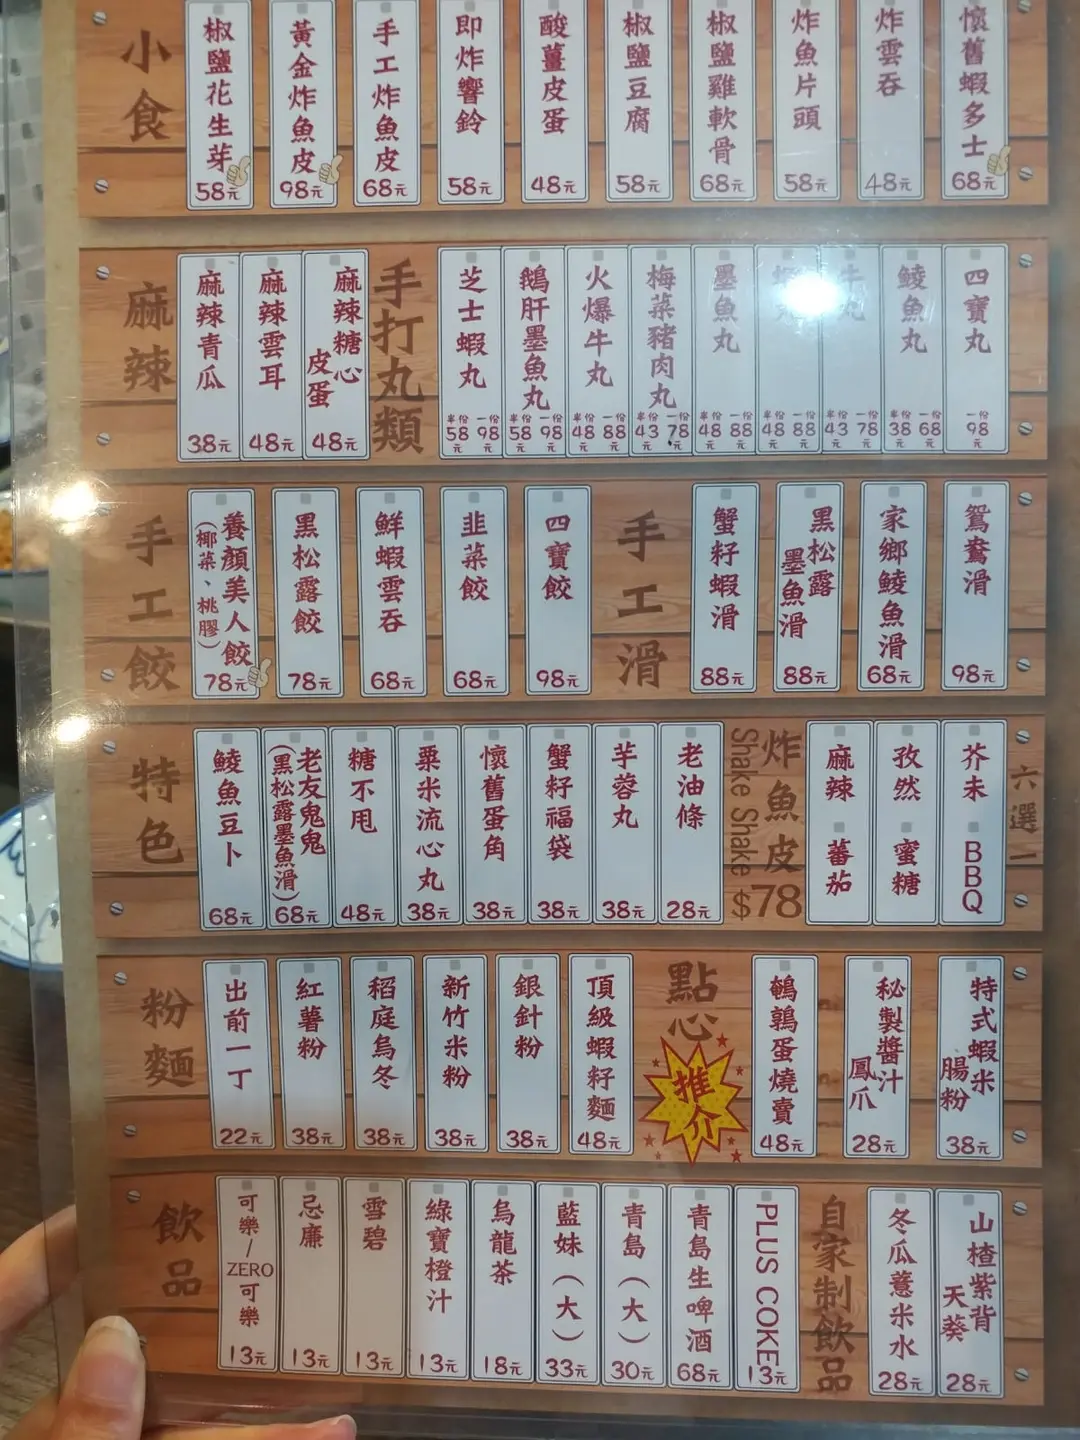 小食
椒鹽花生芽 58元
黃金炸魚皮 98元
手工炸魚皮 68元
即炸響鈴 58元
酸薑皮蛋 48元
椒鹽豆腐 58元
椒鹽雞軟骨 68元
炸魚片頭 58元
炸雲吞 48元
懷舊蝦多士 68元
麻辣
麻辣青瓜 38元
麻辣雲耳 48元
麻辣糖心皮蛋 48元
手打丸類
芝士蝦丸 半份58元 一份98元
鵝肝墨魚丸 半份58元 一份98元
火爆牛丸 半份48元 一份88元
梅菜豬肉丸 半份43元 一份78元
墨魚丸 半份48元 一份88元
半份48元 一份88元
牛丸 半份43元 一份78元
鯪魚丸 半份38元 一份68元
四寶丸 一份98元
手工餃
養顏美人餃 (椰菜、桃膠) 78元
黑松露餃 78元
鮮蝦雲吞 68元
韭菜餃 68元
四寶餃 98元
手工滑
蟹籽蝦滑 88元
黑松露墨魚滑 88元
家鄉鯪魚滑 68元
鴛鴦滑 98元
特色
鯪魚豆卜 68元
老友鬼鬼 (黑松露墨魚滑) 68元
糖不甩 48元
粟米流心丸 38元
懷舊蛋角 38元
蟹籽福袋 38元
芋蓉丸 38元
老油條 28元
炸魚皮
Shake Shake
$78
麻辣
蕃茄
孜然
蜜糖
芥末
BBQ
六選一
粉麵
出前一丁 22元
紅薯粉 38元
稻庭烏冬 38元
新竹米粉 38元
銀針粉 38元
頂級蝦籽麵 48元
點心
推介
鵪鶉蛋燒賣 48元
秘製醬汁鳳爪 28元
特式蝦米腸粉 38元
飲品
可樂/ZERO可樂 13元
忌廉 13元
雪碧 13元
綠寶橙汁 13元
烏龍茶 18元
藍妹(大) 33元
青島(大) 30元
青島生啤酒 68元
PLUS COKE 13元
自家制飲品
冬瓜薏米水 28元
山楂紫背天葵 28元